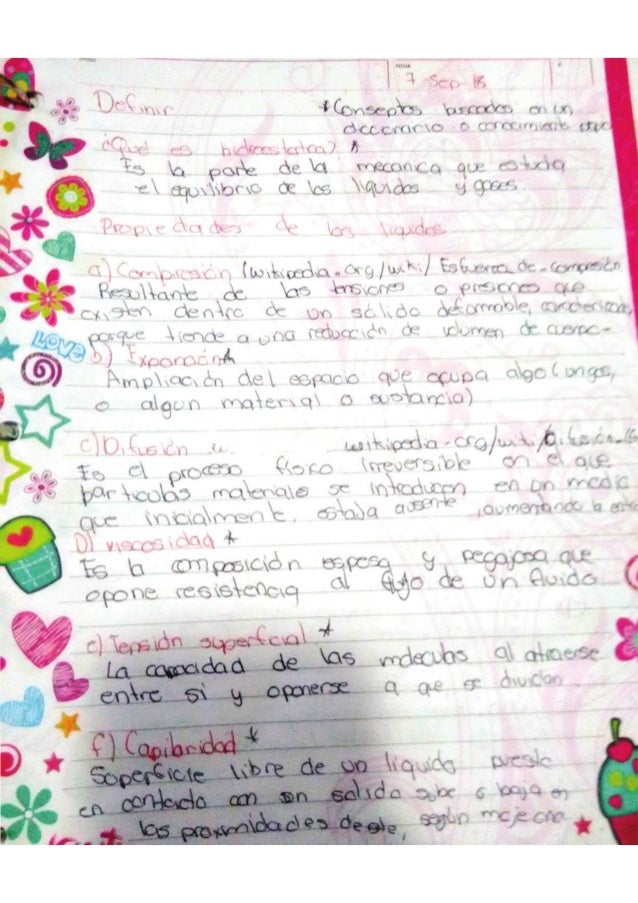 FECHA
7 Sep-18
Definir
*Conseptos buscados en un
diccionario o conocimiento
¿Qué es hidrostatica? *
Es la parte de la mecanica que estudia
el equilibrio de los liquidos y gases.
Propiedades de los liquidos
a) Compresión (wikipedia.org/wiki/Esfuerzo_de_compresión
Resultante de las tensiones o presiones que
existen dentro de un sólido deformable, caracterizado
porque tiende a una reducción de volumen de cuerpo-
LOVE
b) Expansión*
Ampliación del espacio que ocupa algo (un gas,
o algun material o sustancia)
c) Difusión wikipedia.org/wiki/Difusión
Es el proceso fisico irreversible en el que
particulas materiale se introducen en un medio
que inicialmente, estaba ausente, aumentando la
D) viscosidad *
Es la composición espesa y pegajosa que
opone resistencia al flujo de un fluido
e) Tensión superficial *
La capacidad de las moleculas al atraerse
entre si y oponerse a que se dividan.
f) Capilaridad *
Superficie libre de un liquido puesto
en contacto con un solido sube o baja en
las proximidades de este, según moje o no